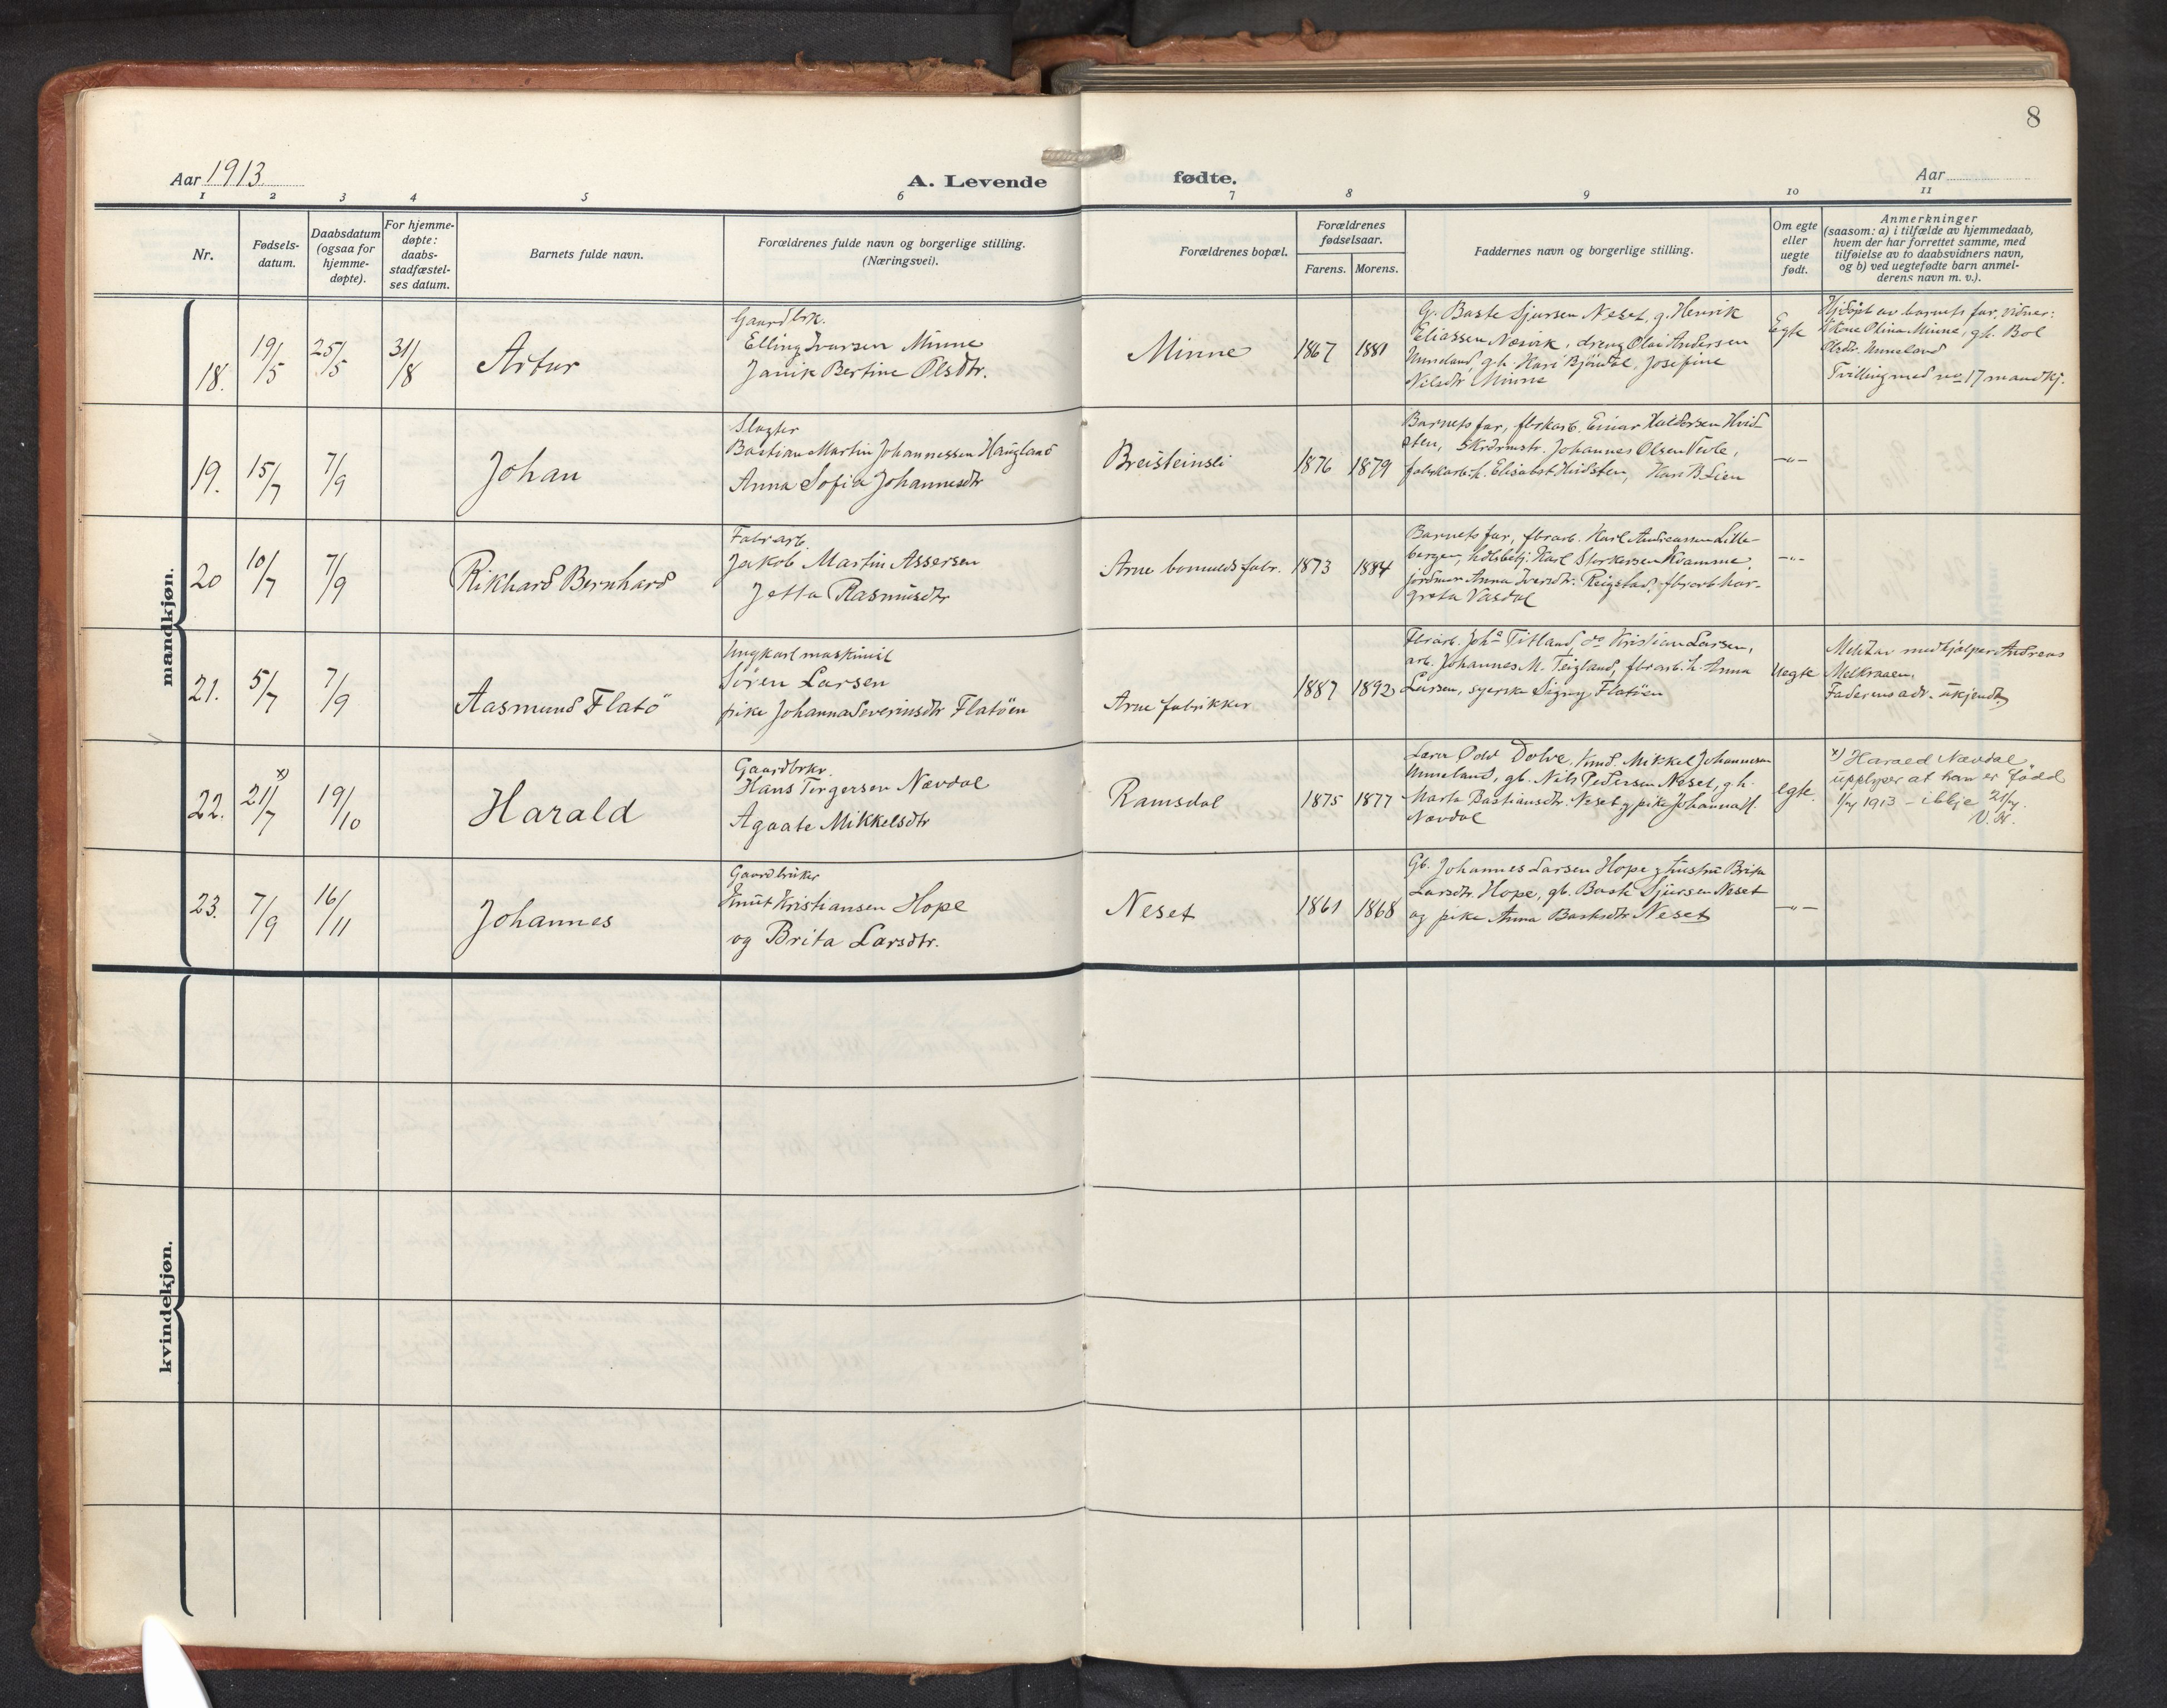 8
Aar 1913
A. Levende
fødte.
Aar
1 2 3 4 5 6 7 8 9 10 11
Nr.
Fødsels-
datum.
Daabsdatum
(ogsaa for
hjemme-
døpte).
For hjemme-
døpte:
daabs-
stadfæstel-
ses datum.
Barnets fulde navn.
Forældrenes fulde navn og borgerlige stilling.
(Næringsvei).
Forældrenes bopæl.
Forældrenes
fødselsaar.
Farens. Morens.
Faddernes navn og borgerlige stilling.
Om egte
eller
uegte
født.
Anmerkninger
(saasom: a) i tilfælde av hjemmedaab,
hvem der har forrettet samme, med
tilføielse av to daabsvidners navn,
og b) ved uegtefødte barn anmel-
derens navn m. v.).
mandkjøn.
18.
19/5
25/5
31/8
Artur
Gaardbrk.
Elling Ivarsen Minne
Janik Bertine Olsdtr.
Minne
1867 1881
G. Baste Sjursen Neset, g. Henrik
Eliassen Næsvik, dreng Olai Andersen
Unneland, gh. Kari Bjøndal, Josefine
Nilsdtr Minne
Egte
Hjdøpt av barnets far, vidner:
Kone Olina Minne, gh. Bol
Olsdtr. Unneland
Tvilling med no 17 mandkj.
19.
15/7
7/9
Johan
Slagter
Bastian Martin Johannessen Haugland
Anna Sofia Johannesdtr
Breisteinsli
1876 1879
Barnets far, fbrkarb. Einar Haldorsen Hvid
sten, skrdrmstr. Johannes Olsen Vevle,
fabrkarb.h. Elisabet Hvidsten, Kari B. Lien
—"—
20
10/7
7/9
Rikhard Bernhard
Fabrarb.
Jakob Martin Assersen
Jetta Rasmusdtr
Arne bomulds fabr.
1873 1884
Barnets far, fbrarb. Karl Andreassen Lille-
bergen, hdlsbetj. Karl Storksersen Kvamme,
jordmor Anna Iversdtr. Reigstad, fbrarb Mar-
greta Vasdal
—"—
21.
5/7
7/9
Aasmund Flatö
Ungkarl maskinist
Sören Larsen
pike Johanna Severinsdtr Flatöen
Arne fabrikker
1887 1892
Fbrarb. Johs Titland, do Kristian Larsen,
arb. Johannes M. Teigland, fbrarb. h. Anna
Larsen, syerske Signy Flatöen
Uegte
Meldar medhjelper Andreas
Melkraaen.
Faderens adr. ukjendt.
22.
x)
21/7
19/10
Harald
Gaardbrkr.
Hans Torgersen Nævdal
Agaate Mikkelsdtr
Ramsdal
1875 1877
Lærer Odd Dolve, Kand. Mikkel Johannessen
Unneland, gb. Nils Pedersen Neset, gh.
Marta Bastiansdtr. Neset g pike Johanna H.
Nævdal
egte.
x) Harald Nævdal
upplyser at han er född
1/7 1913 – ikkje 21/7.
23.
7/9
16/11
Johannes
Gaardbruker
Knut Kristiansen Hope
og Brita Larsdtr.
Neset
1861 1868
Gb. Johannes Larsen Hope g hustru Brita
Larsdtr. Hope, gb. Baste Sjursen Neset
og pike Anna Bastesdtr Neset
—"—
kvindekjøn.